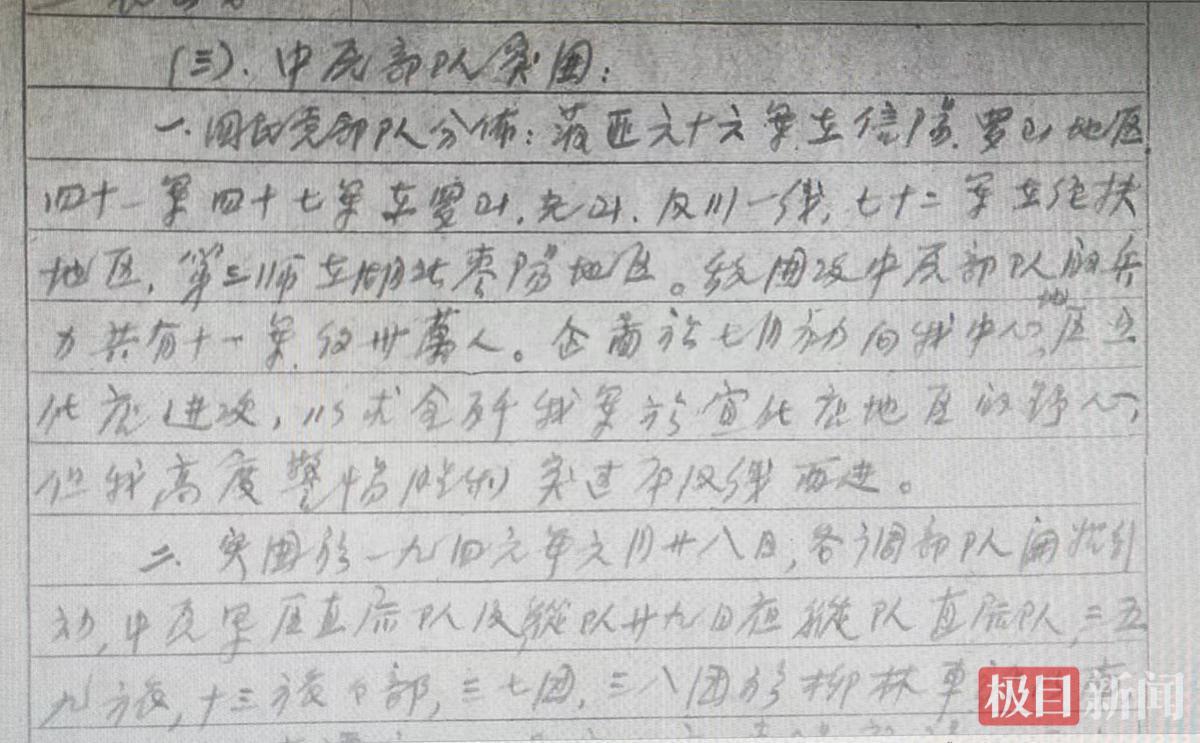 (三).中原部队突围:
一.国民党部队分佈:蒋匪六十六军在信陽.罗山地区
四十一军四十七军在罗山.光山.及川一线,七十二军在经扶
地区,第三师在湖北枣陽地区。围攻中原部队的兵
力共有十一军约卅萬人。企啚於七月初向我中心地区宣
化店进攻,以求全歼我军於宣化店地区的野心,
但我高度警惕突过平汉线西进。
二.突围於一九四六年六月廿八日,各部队开始行
动,中原军区直属队及纵队廿九日在縱队直属队,三五
九旅,十三旅部,三七团,三八团於柳林車
极目新闻